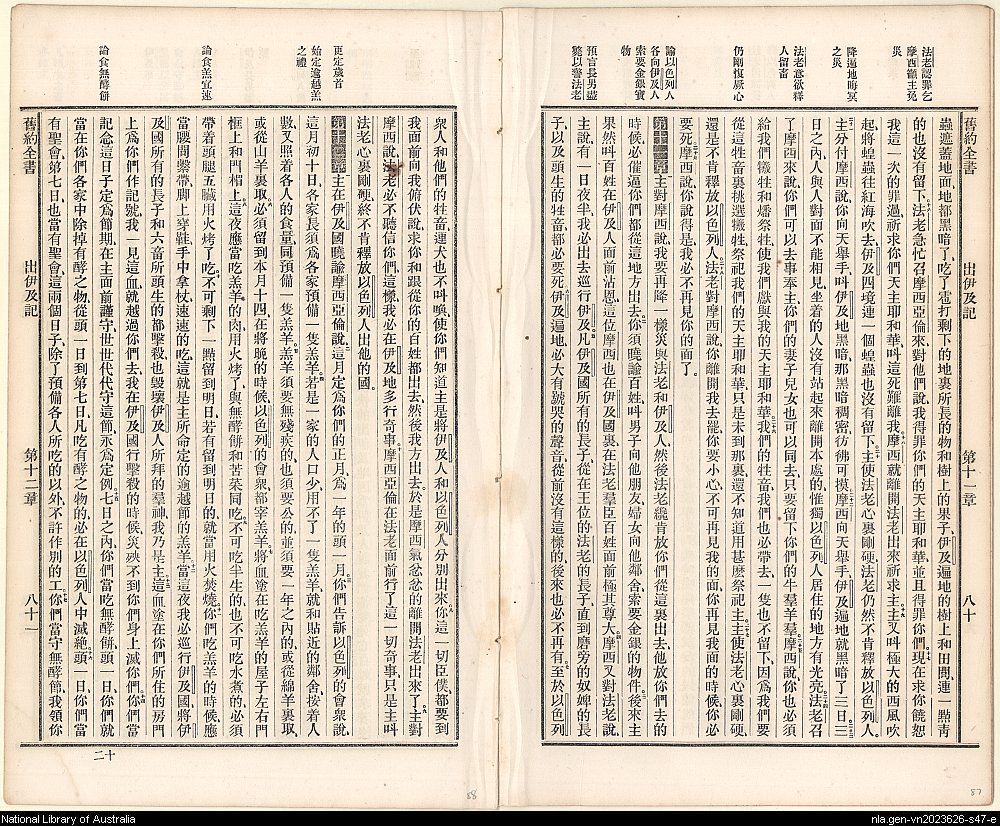 舊約全書 出伊及記 第十一章 八十
法老認罪乞
摩西籲主免
災
降遍地晦冥
之災
法老意欲釋
人留畜
仍剛愎厥心
諭以色列人
各向伊及人
索要金銀寶
物
預言長男盡
斃以警法老
蟲遮蓋地面地都黑暗了吃了雹打剩下的地裏所長的物和樹上的果子伊及遍地的樹上和田間連一點青
的也沒有留下法老急忙召摩西亞倫來對他們說我得罪你們的天主耶和華並且得罪你們現在求你饒恕
我這一次的罪過祈求你們天主耶和華叫這死離離我摩西就離開法老出來祈求主主又叫極大的西風吹
起將蝗蟲往紅海吹去伊及四境連一個蝗蟲也沒有留下主使法老心裏剛硬法老仍然不肯釋放以色列人
主分付摩西說你向天舉手叫伊及地黑暗那黑暗稠密彷彿可摸摩西向天舉手伊及遍地就黑暗了三日三
日之內人與人對面不能相見坐着的人沒有站起來離開本處的惟獨以色列人居住的地方有光亮法老召
了摩西來說你們可以去事奉主你們的妻子兒女也可以同去只要留下你們的牛羣羊羣摩西說你也必須
給我們犧牲和燔祭牲使我們獻與我的天主耶和華我們的牲畜我們也必帶去一隻也不留下因爲我們要
從這牲畜裏挑選犧牲祭祀我們的天主耶和華只是未到那裏還不知道用甚麽祭祀主主使法老心裏剛硬
還是不肯釋放以色列人法老對摩西說你離開我去罷你要小心不可再見我的面你再見我面的時候你必
要死摩西說你說得是我必不再見你的面了
第十一章主對摩西說我要再降一樣災與法老和伊及人然後法老纔肯放你們從這裏出去他放你們去的
時候必催逼你們都從這地方出去你須曉諭百姓叫男子向他朋友婦女向他鄰舍索要金銀的物件後來主
果然叫百姓在伊及人面前沾恩這位摩西也在伊及國裏在法老羣臣百姓面前極其尊大摩西又對法老說
主說有一日夜半我必出去巡行伊及凡伊及國所有的長子從在王位的法老的長子直到磨旁的奴婢的長
子以及頭生的牲畜都必要死伊及遍地必大有號哭的聲音從前沒有這樣的後來也必不再有至於以色列
更定歲首
始定逾越羔
之禮
論食羔宜速
論食無酵餅
衆人和他們的牲畜連犬也不叫喚使你們知道主是將伊及人和以色列人分別出來你這一切臣僕都要到
我面前向我俯伏說求你和跟從你的百姓都出去然後我方出去於是摩西氣忿忿的離開法老出來了主對
摩西說法老必不聽信你們這樣我必在伊及地多行奇事摩西亞倫在法老面前行了這一切奇事只是主叫
法老心裏剛硬終不肯釋放以色列人出他的國
第十二章主在伊及國曉諭摩西亞倫說這月定爲你們的正月爲一年的頭一月你們告訴以色列的會衆說
這月初十日各家長須爲各家預備一隻羔羊若是一家的人口少用不了一隻羔羊就和貼近的鄰舍按着人
數又照着各人的食量同預備一隻羔羊羔羊須要無殘疾的也須要公的並須要一年之內的或從綿羊裏取
或從山羊裏取必須留到本月十四在將晚的時候以色列的會衆都宰羔羊將血塗在吃羔羊的屋子左右門
框上和門楣上這夜應當吃羔羊的肉用火烤了與無酵餅和苦菜同吃不可吃半生的也不可吃水煮的必須
帶着頭腿五臟用火烤了吃不可剩下一點留到明日若有留到明日的就當用火焚燒你們吃羔羊的時候應
當腰間繫帶脚上穿鞋手中拿杖速速的吃這就是主所命定的逾越節的羔羊當這夜我必巡行伊及國將伊
及國所有的長子和六畜所頭生的都擊殺也毀壞伊及人所拜的羣神我乃是主這血塗在你們所住的房門
上爲你們作記號我一見這血就越過你們去我在伊及國行擊殺的時候災殃不到你們身上滅你們你們當
記念這日子定爲節期在主面前謹守世世代代守這節永爲定例七日之內你們當吃無酵餅頭一日你們就
當在你們各家中除掉有酵之物從頭一日到第七日凡吃有酵之物的必在以色列人中滅絕頭一日你們當
有聖會第七日也當有聖會這兩個日子除了預備各人所吃的以外不許作別的工你們當守無酵節我領你
舊約全書 出伊及記 第十二章 八十一
二十
88
87
National Library of Australia
nla.gen-vn2023626-s47-e